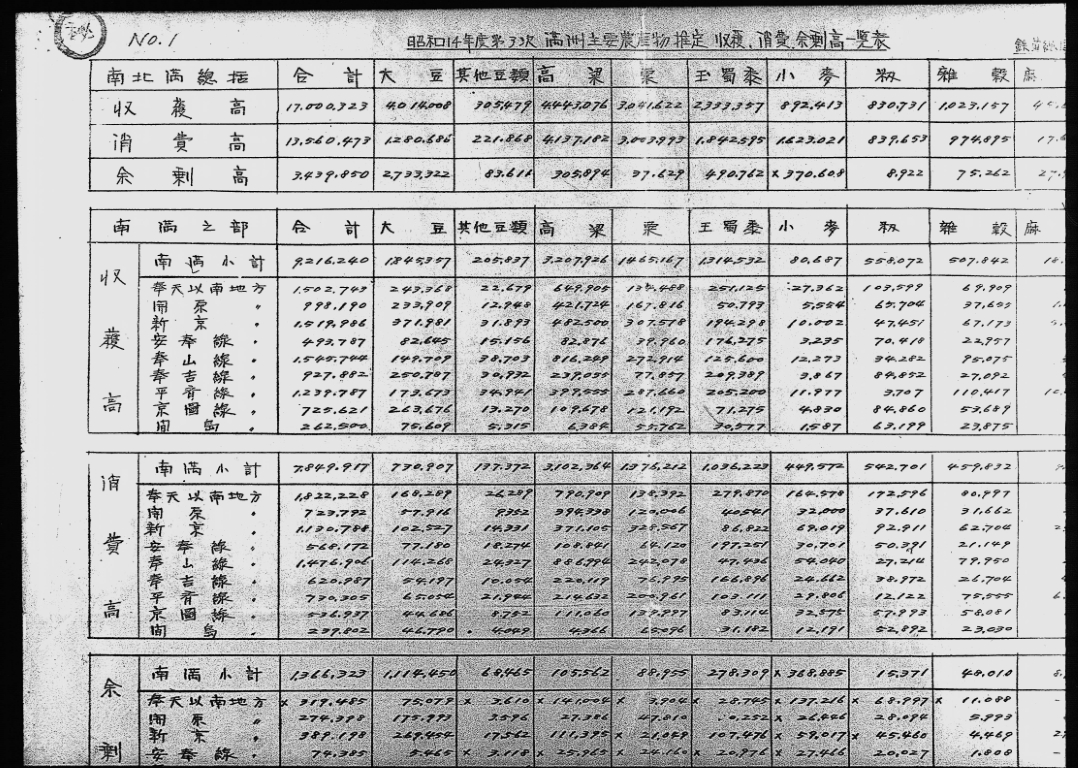 NO.1
昭和14年度第3次 満洲主要農産物推定 收穫、消費、余剰高一覧表
南北満総括 合計 大豆 其他豆類 高粱 粟 玉蜀黍 小麥 籾 雜穀 麻
收穫高 17,000,323 4,014,008 305,479 4,443,076 3,041,622 2,333,357 892,413 830,731 1,023,157
消費高 13,560,473 1,280,686 221,868 4,137,182 3,003,993 1,842,595 1,623,021 839,653 974,895
余剰高 3,439,850 2,733,322 83,611 305,894 37,629 490,762 ×370,608 8,922 75,262
南満之部 合計 大豆 其他豆類 高粱 粟 玉蜀黍 小麥 籾 雜穀 麻
收穫高
南満小計 9,216,240 1,845,357 205,837 3,207,926 1,465,167 1,314,532 80,687 558,072 507,842
奉天以南地方 1,502,743 243,368 22,679 649,905 251,125 27,362 103,599 69,909
開原 〃 998,190 233,909 12,948 421,724 167,816 50,793 5,554 65,704 37,655
新京 〃 1,519,986 371,981 31,893 482,500 307,578 194,298 10,002 47,451 67,173
安奉線 〃 493,787 82,645 15,156 82,876 39,960 176,275 3,235 70,418 22,957
奉山線 〃 1,545,744 149,709 38,703 816,249 272,914 125,600 12,273 34,282 95,075
奉吉線 〃 927,882 250,787 30,932 239,055 77,857 209,389 3,867 84,852 27,092
平齊線 〃 1,239,787 173,673 34,941 399,555 287,660 205,200 11,977 3,707 110,417
京圖線 〃 725,621 263,676 13,270 109,678 121,192 71,275 4,830 84,860 53,689
間島 〃 262,500 75,609 5,315 6,384 55,762 30,577 1,587 63,199 23,875
消費高
南満小計 7,849,917 730,907 137,372 3,102,364 1,376,212 1,036,223 449,572 542,701 459,832
奉天以南地方 1,822,228 168,289 26,289 790,909 138,392 279,870 164,578 172,596 80,997
開原 〃 723,792 57,916 9,352 394,338 120,006 40,541 32,000 37,610 31,662
新京 〃 1,130,788 102,527 14,331 371,105 328,567 86,822 69,019 92,911 62,704
安奉線 〃 568,172 77,180 18,274 108,841 64,120 197,251 30,701 50,391 21,149
奉山線 〃 1,476,906 114,268 24,327 886,994 242,078 47,436 54,040 27,214 79,950
奉吉線 〃 620,987 54,197 10,054 220,119 76,995 166,896 24,662 38,972 26,704
平齊線 〃 730,305 65,054 21,984 214,632 200,961 103,111 29,806 12,122 75,555
京圖線 〃 536,937 44,686 8,752 111,060 139,997 83,114 32,575 57,993 58,081
間島 〃 239,802 46,790 4,049 4,366 65,096 31,182 12,191 52,892 23,030
余剰
南満小計 1,366,323 1,114,450 68,465 105,562 88,955 278,309 ×368,885 15,371 48,010
奉天以南地方 ×319,485 75,079 ×3,610 ×141,004 ×3,904 ×28,745 ×137,216 ×68,997 ×11,088
開原 〃 274,398 175,993 3,596 27,386 47,810 ×26,446 28,094 5,993
新京 〃 389,198 269,454 17,562 111,395 ×21,029 107,476 ×59,017 ×45,460 4,469
安奉線 〃 74,385 5,465 ×3,118 ×25,965 ×24,160 ×20,976 ×27,466 20,027 1,808